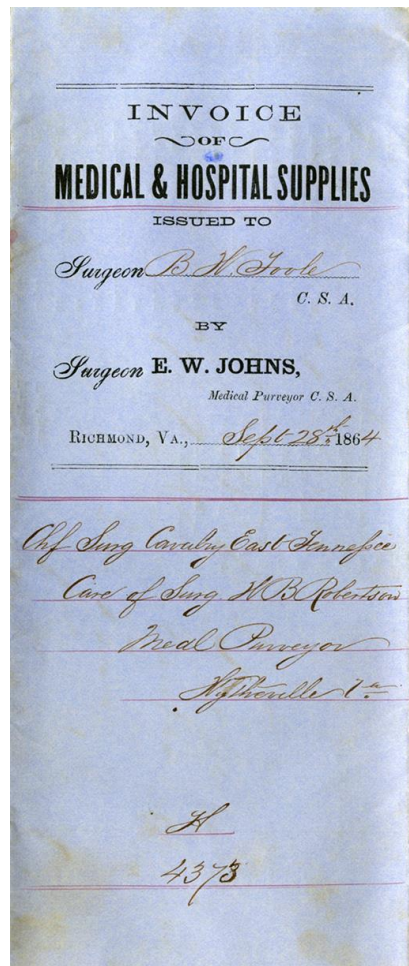 INVOICE
OF
MEDICAL & HOSPITAL SUPPLIES
ISSUED TO
Surgeon B. W. Toole
C. S. A.
BY
Surgeon E. W. JOHNS,
Medical Purveyor C. S. A.
RICHMOND, VA., Sept 28th 1864
Chf Surg Cavalry East Tennessee
Care of Surg H B Robertson
Medl Purveyor
Wytheville Va
H
4373